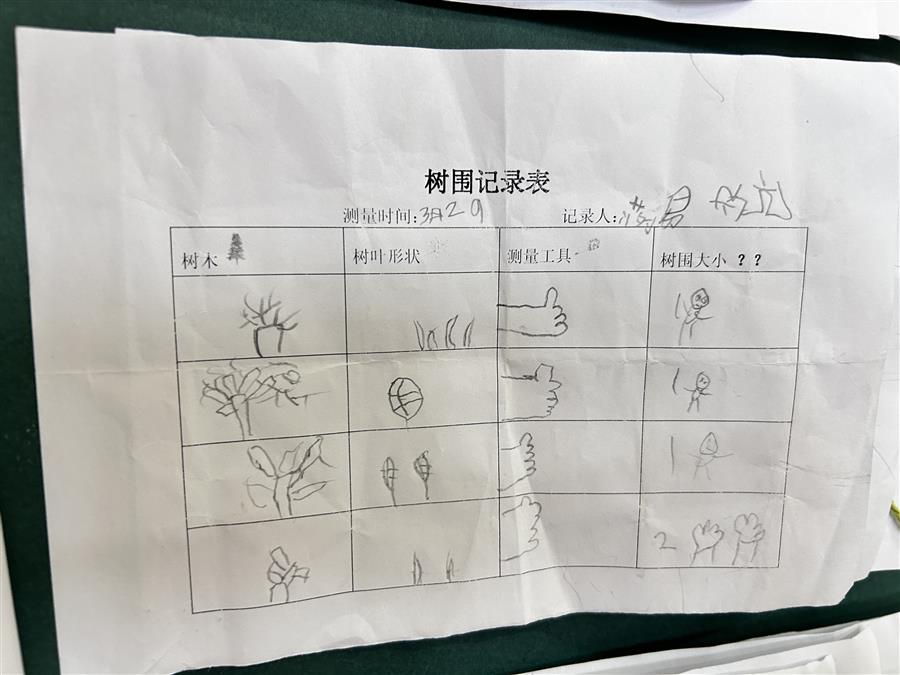 树围记录表
测量时间:3月29 记录人:
树木 树叶形状 测量工具 树围大小 ??
1
1
1
2